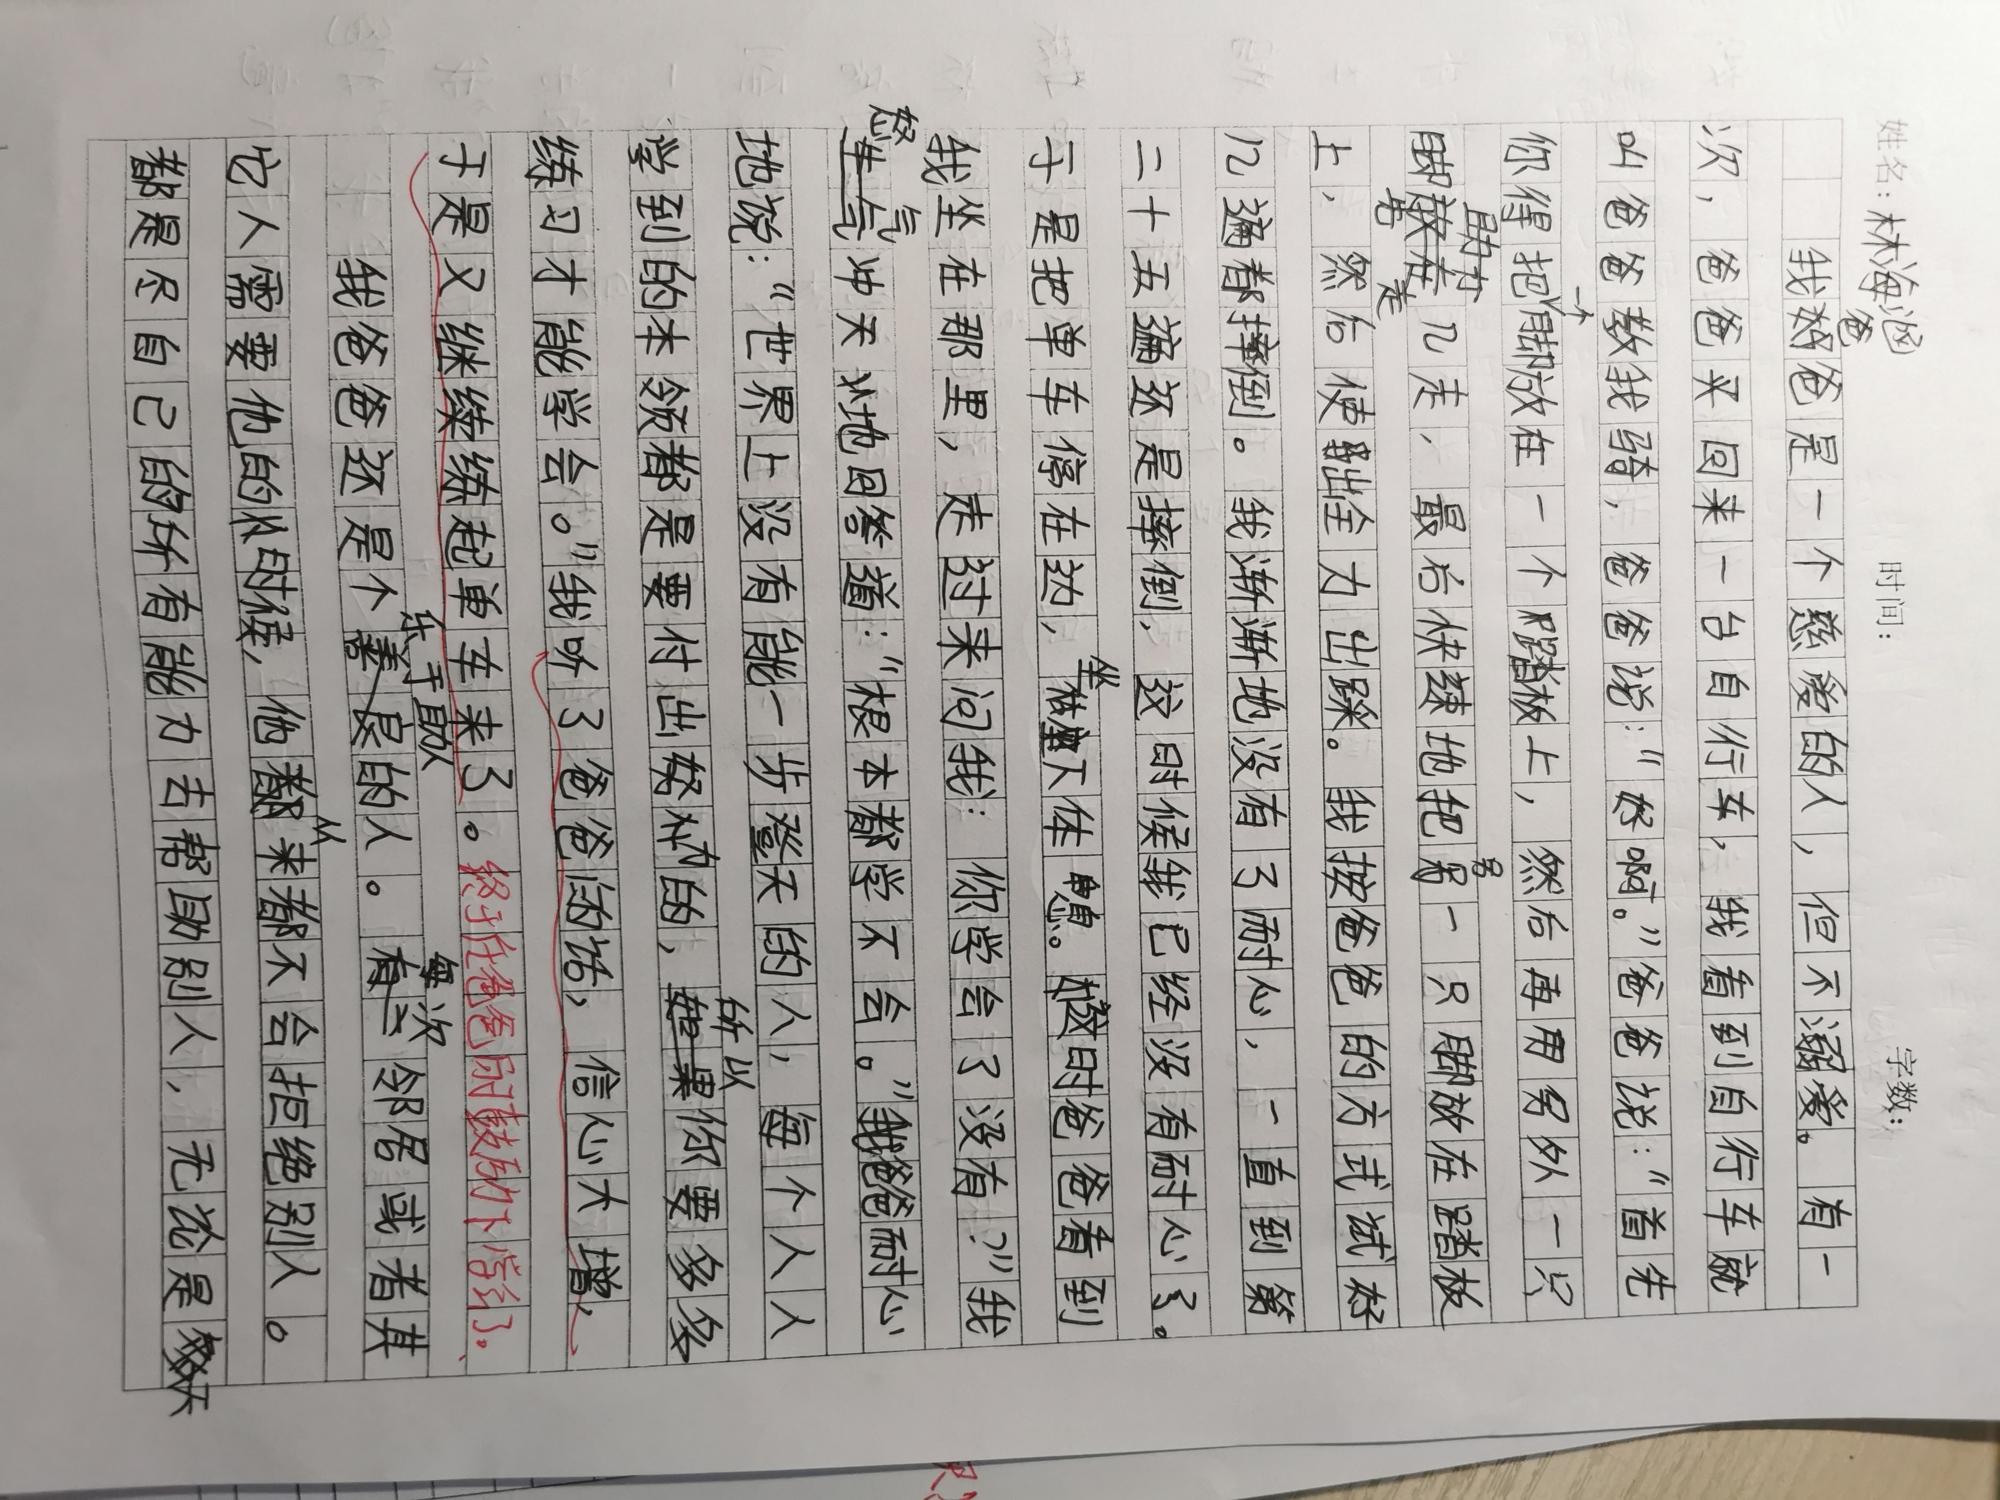 姓名：林海涵 时间： 字数：
我爸爸是一个慈爱的人，但不溺爱。有一
次，爸爸买回来一台自行车，我看到自行车就
叫爸爸教我骑，爸爸说：“好啊。”爸爸说：“首先
你得把一个脚放在一个踏板上，然后再用另外一只
脚助力走几走，最后快速地把另一只脚放在踏板
上，然后使出全力出踩。我按爸爸的方式试好
几遍都摔倒。我渐渐地没有了耐心，一直到第
二十五遍还是摔倒，这时候我已经没有耐心了。
于是把单车停在边，坐下休息。这时爸爸看到
我坐在那里，走过来问我：你学会了没有？”我
怒气冲天地回答道：“根本都学不会。”爸爸耐心
地说：“世界上没有能一步登天的人，每个人人
学到的本领都是要付出努力的，所以你要多多
练习才能学会。”我听了爸爸的话，信心大增，
于是又继续练起单车来了。终于在爸爸的鼓励下学会了。
我爸爸还是个乐于助人的人。每次邻居或者其
它人需要他的时候，他从来都不会拒绝别人。
都是尽自己的所有能力去帮助别人，无论是